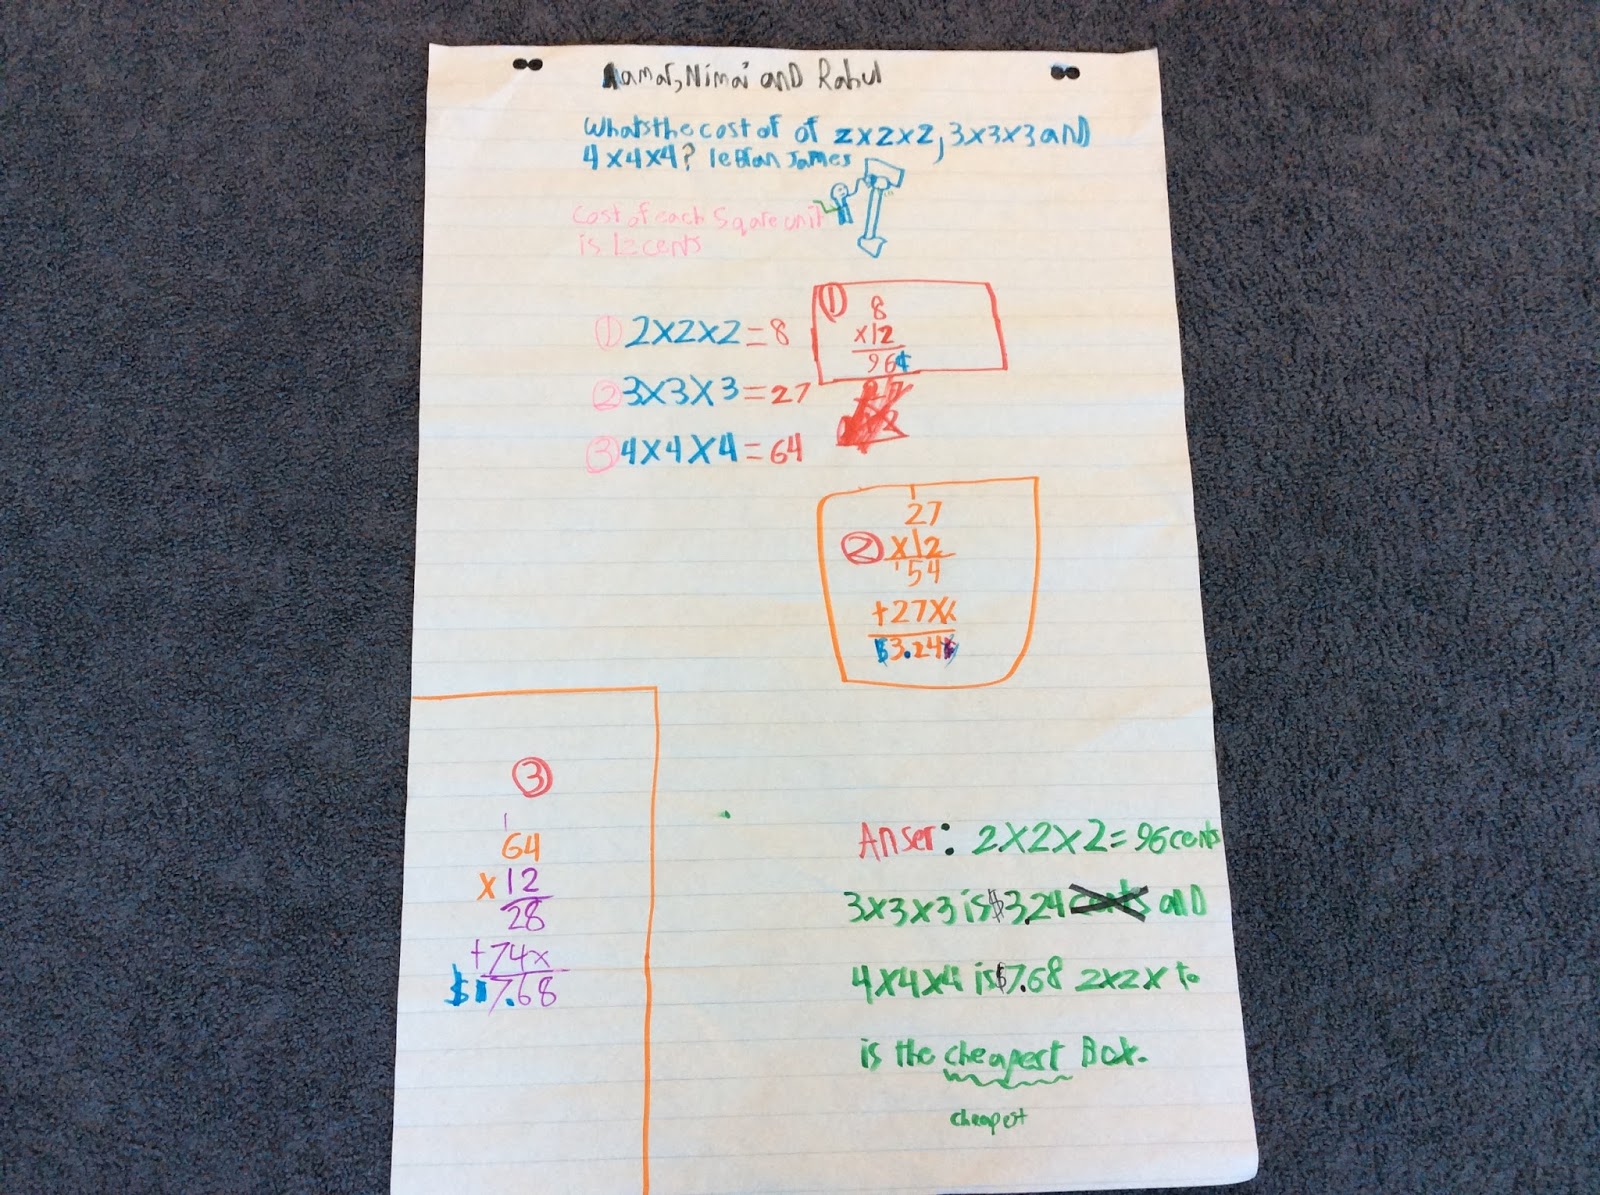 Lamar, Nimai and Rahul
Whats the cost of of 2x2x2, 3x3x3 and
4x4x4? leBran James
Cost of each Sqare unit
is 12 cents
① 2x2x2=8
② 3x3x3=27
③ 4x4x4=64
①
8
x12
96¢
1
27
② x12
1 54
+27x
$3.24
③
1
64
x12
28
+74x
$7.68
Anser: 2x2x2=96cents
3x3x3 is $3.24 cents and
4x4x4 is $7.68 2x2x to
is the cheapest Box.
cheapest